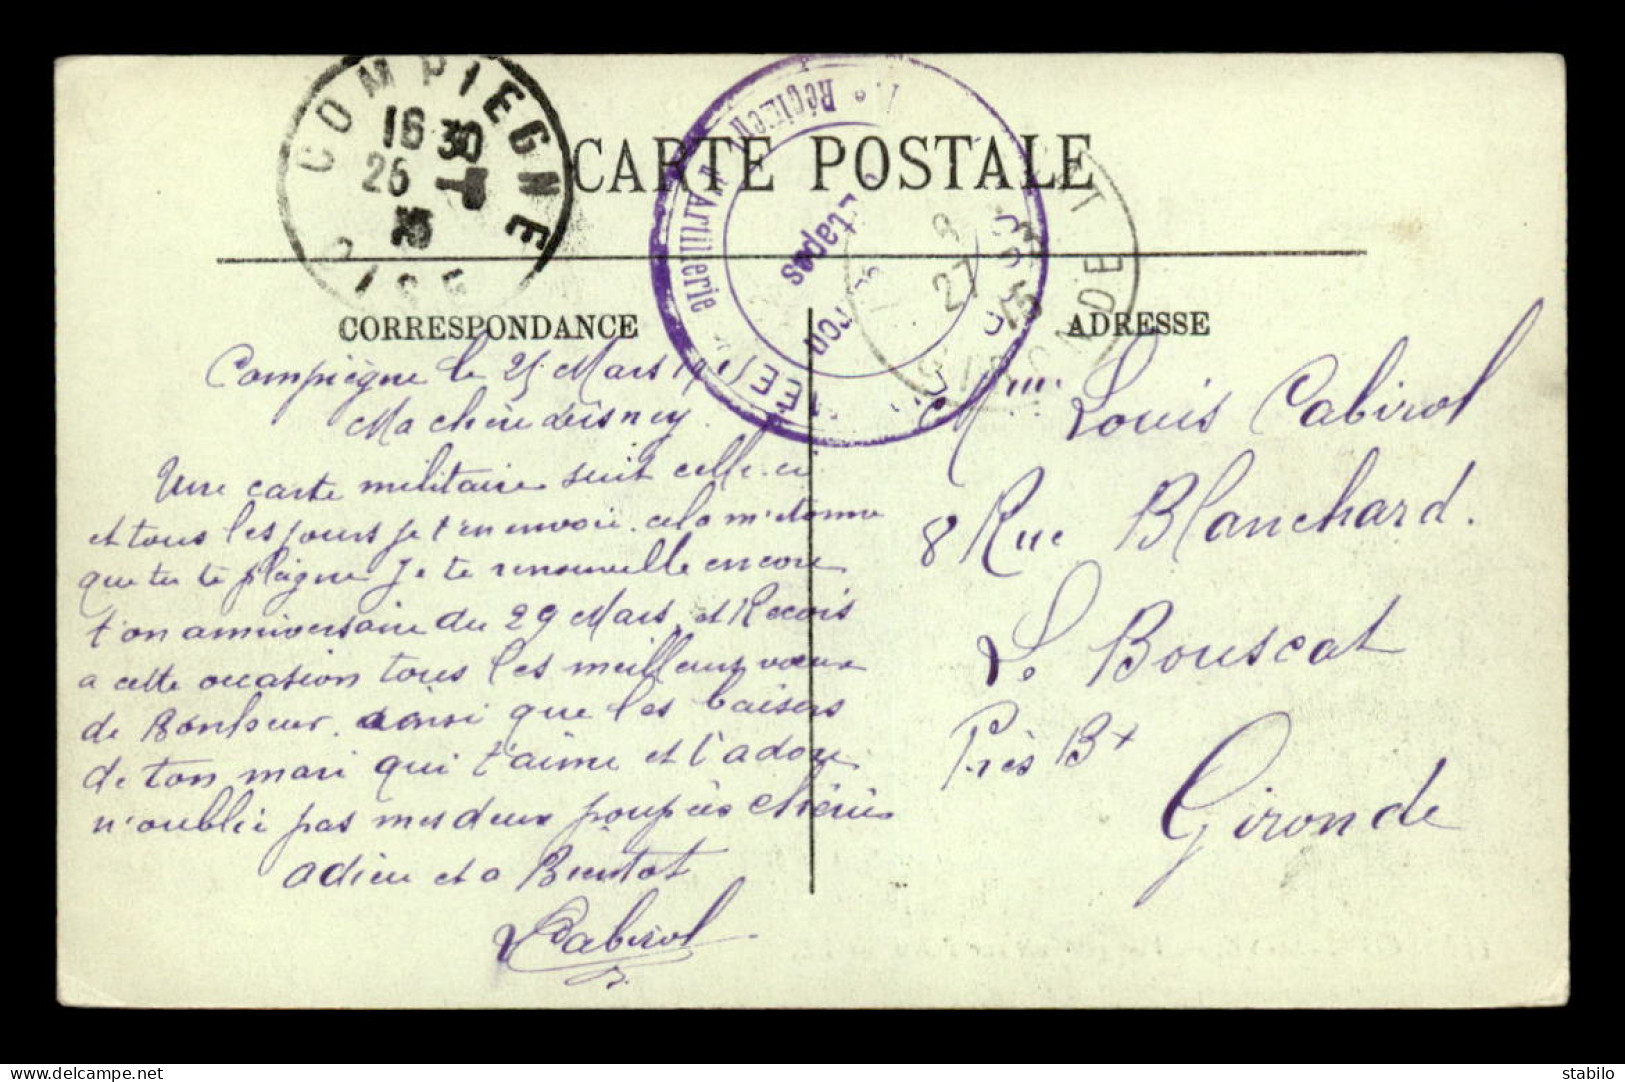 COMPIEGNE
16 30
26
OISE
Régiment d'Artillerie
Etapes
27
GIRONDE
CARTE POSTALE
CORRESPONDANCE
ADRESSE
Compiègne le 25 Mars 1915
Ma chère
Une carte militaire suit celle-ci
et tous les jours je t'en envoie. cela m'etonne
que tu te plaigne Je te renouvelle encore
t'on anniversaire du 29 Mars, et Recois
a cette occasion tous les meilleurs voeux
de Bonheur. ainsi que les baisers
de ton mari qui t'aime et t'adore
n'oublie pas mes deux poupées chéries
adieu et a Bientot
LCabirol
Mme Louis Cabirol
8 Rue Blanchard.
Le Bouscat
Près Bx
Gironde
www.delcampe.net
stabilo